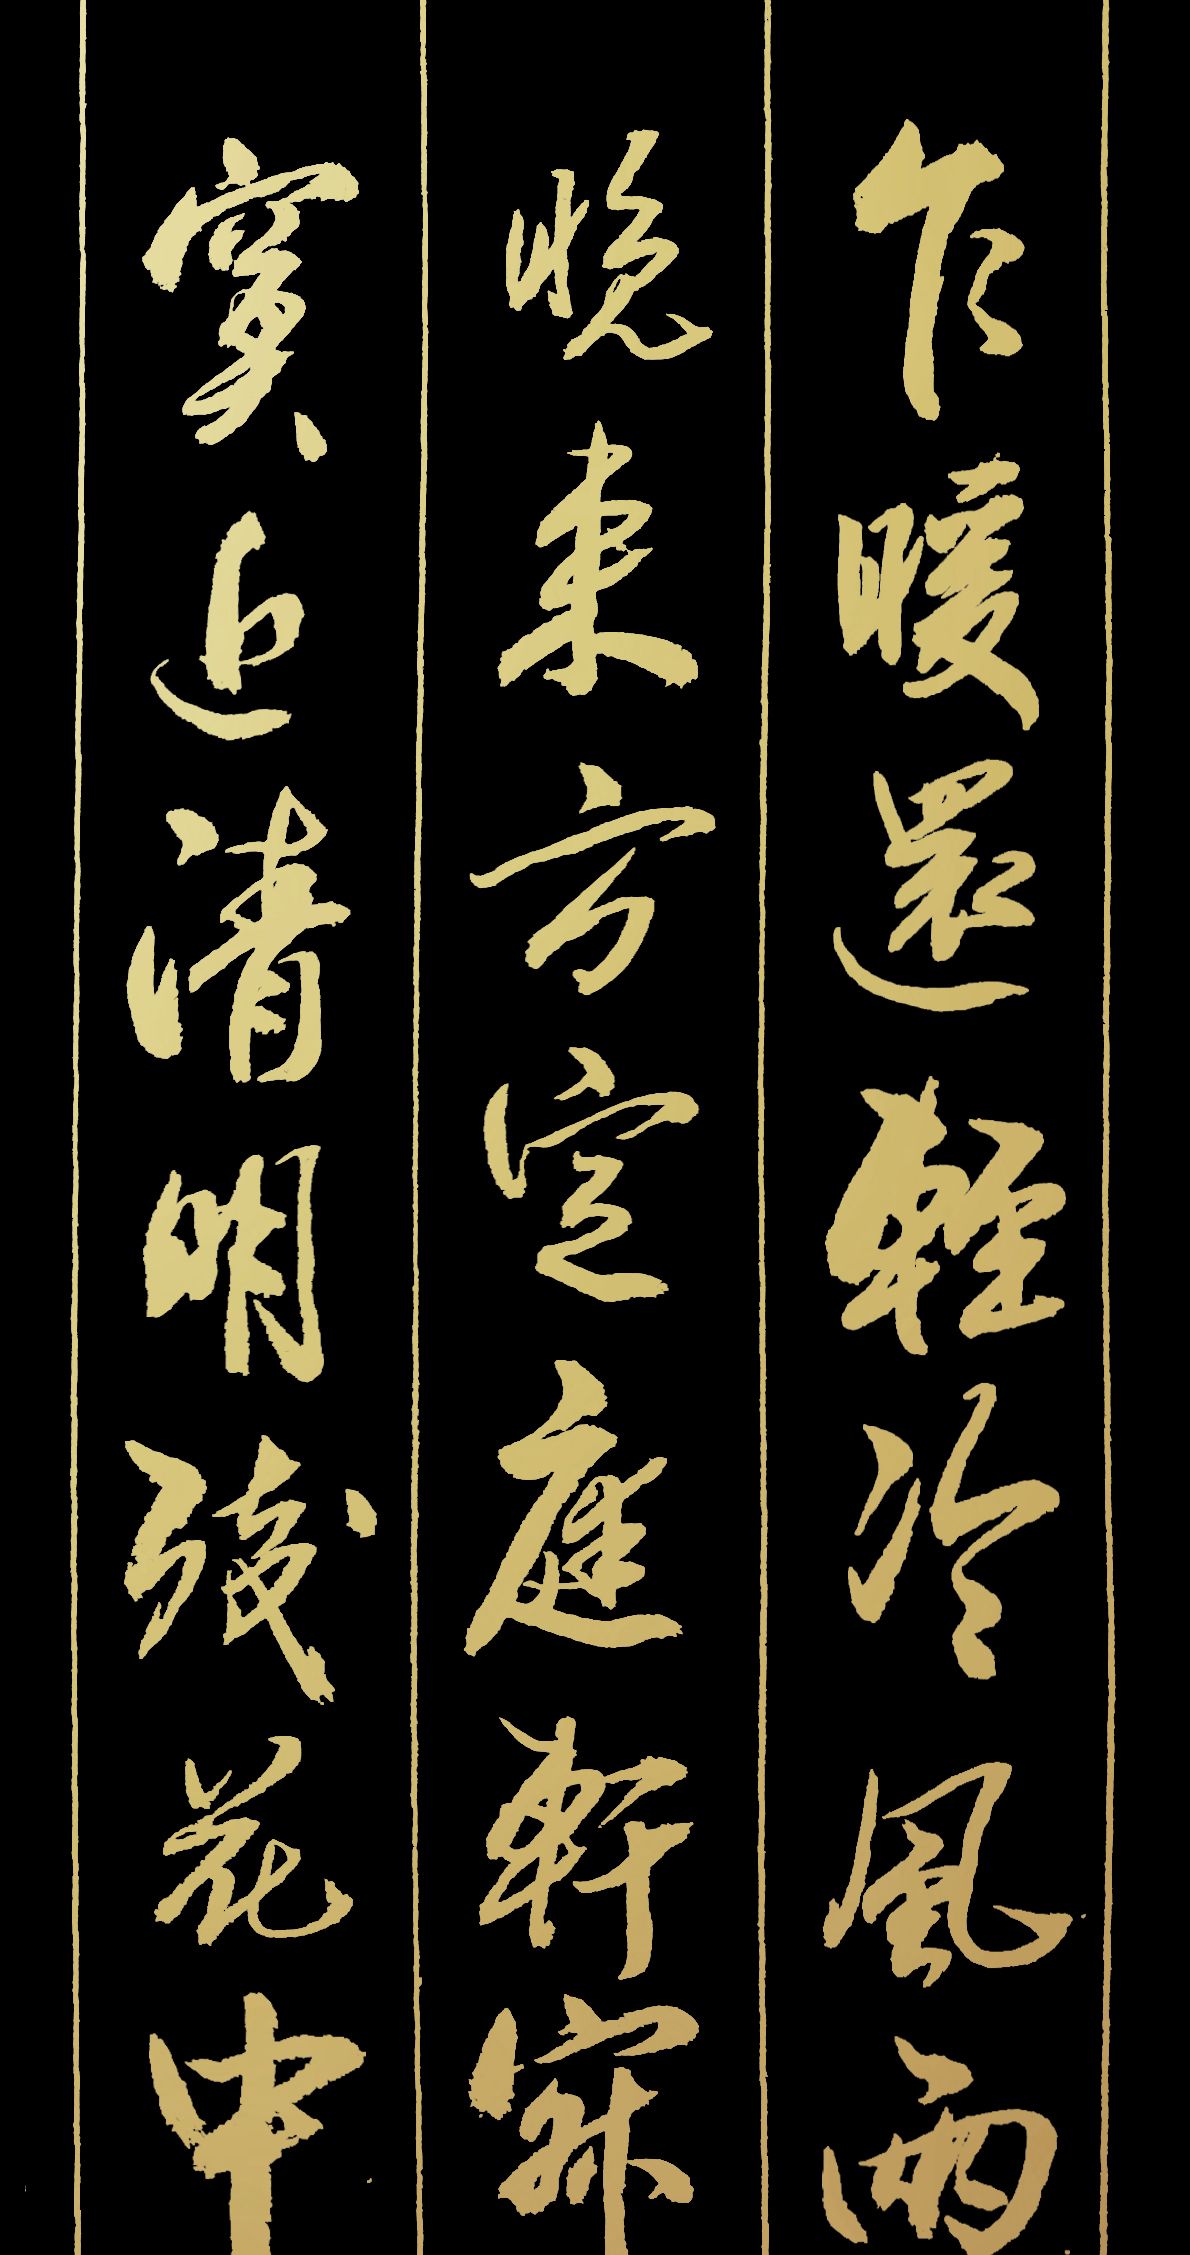 乍暖還輕冷風雨
晚來方定庭軒寂
寞近清明殘花中